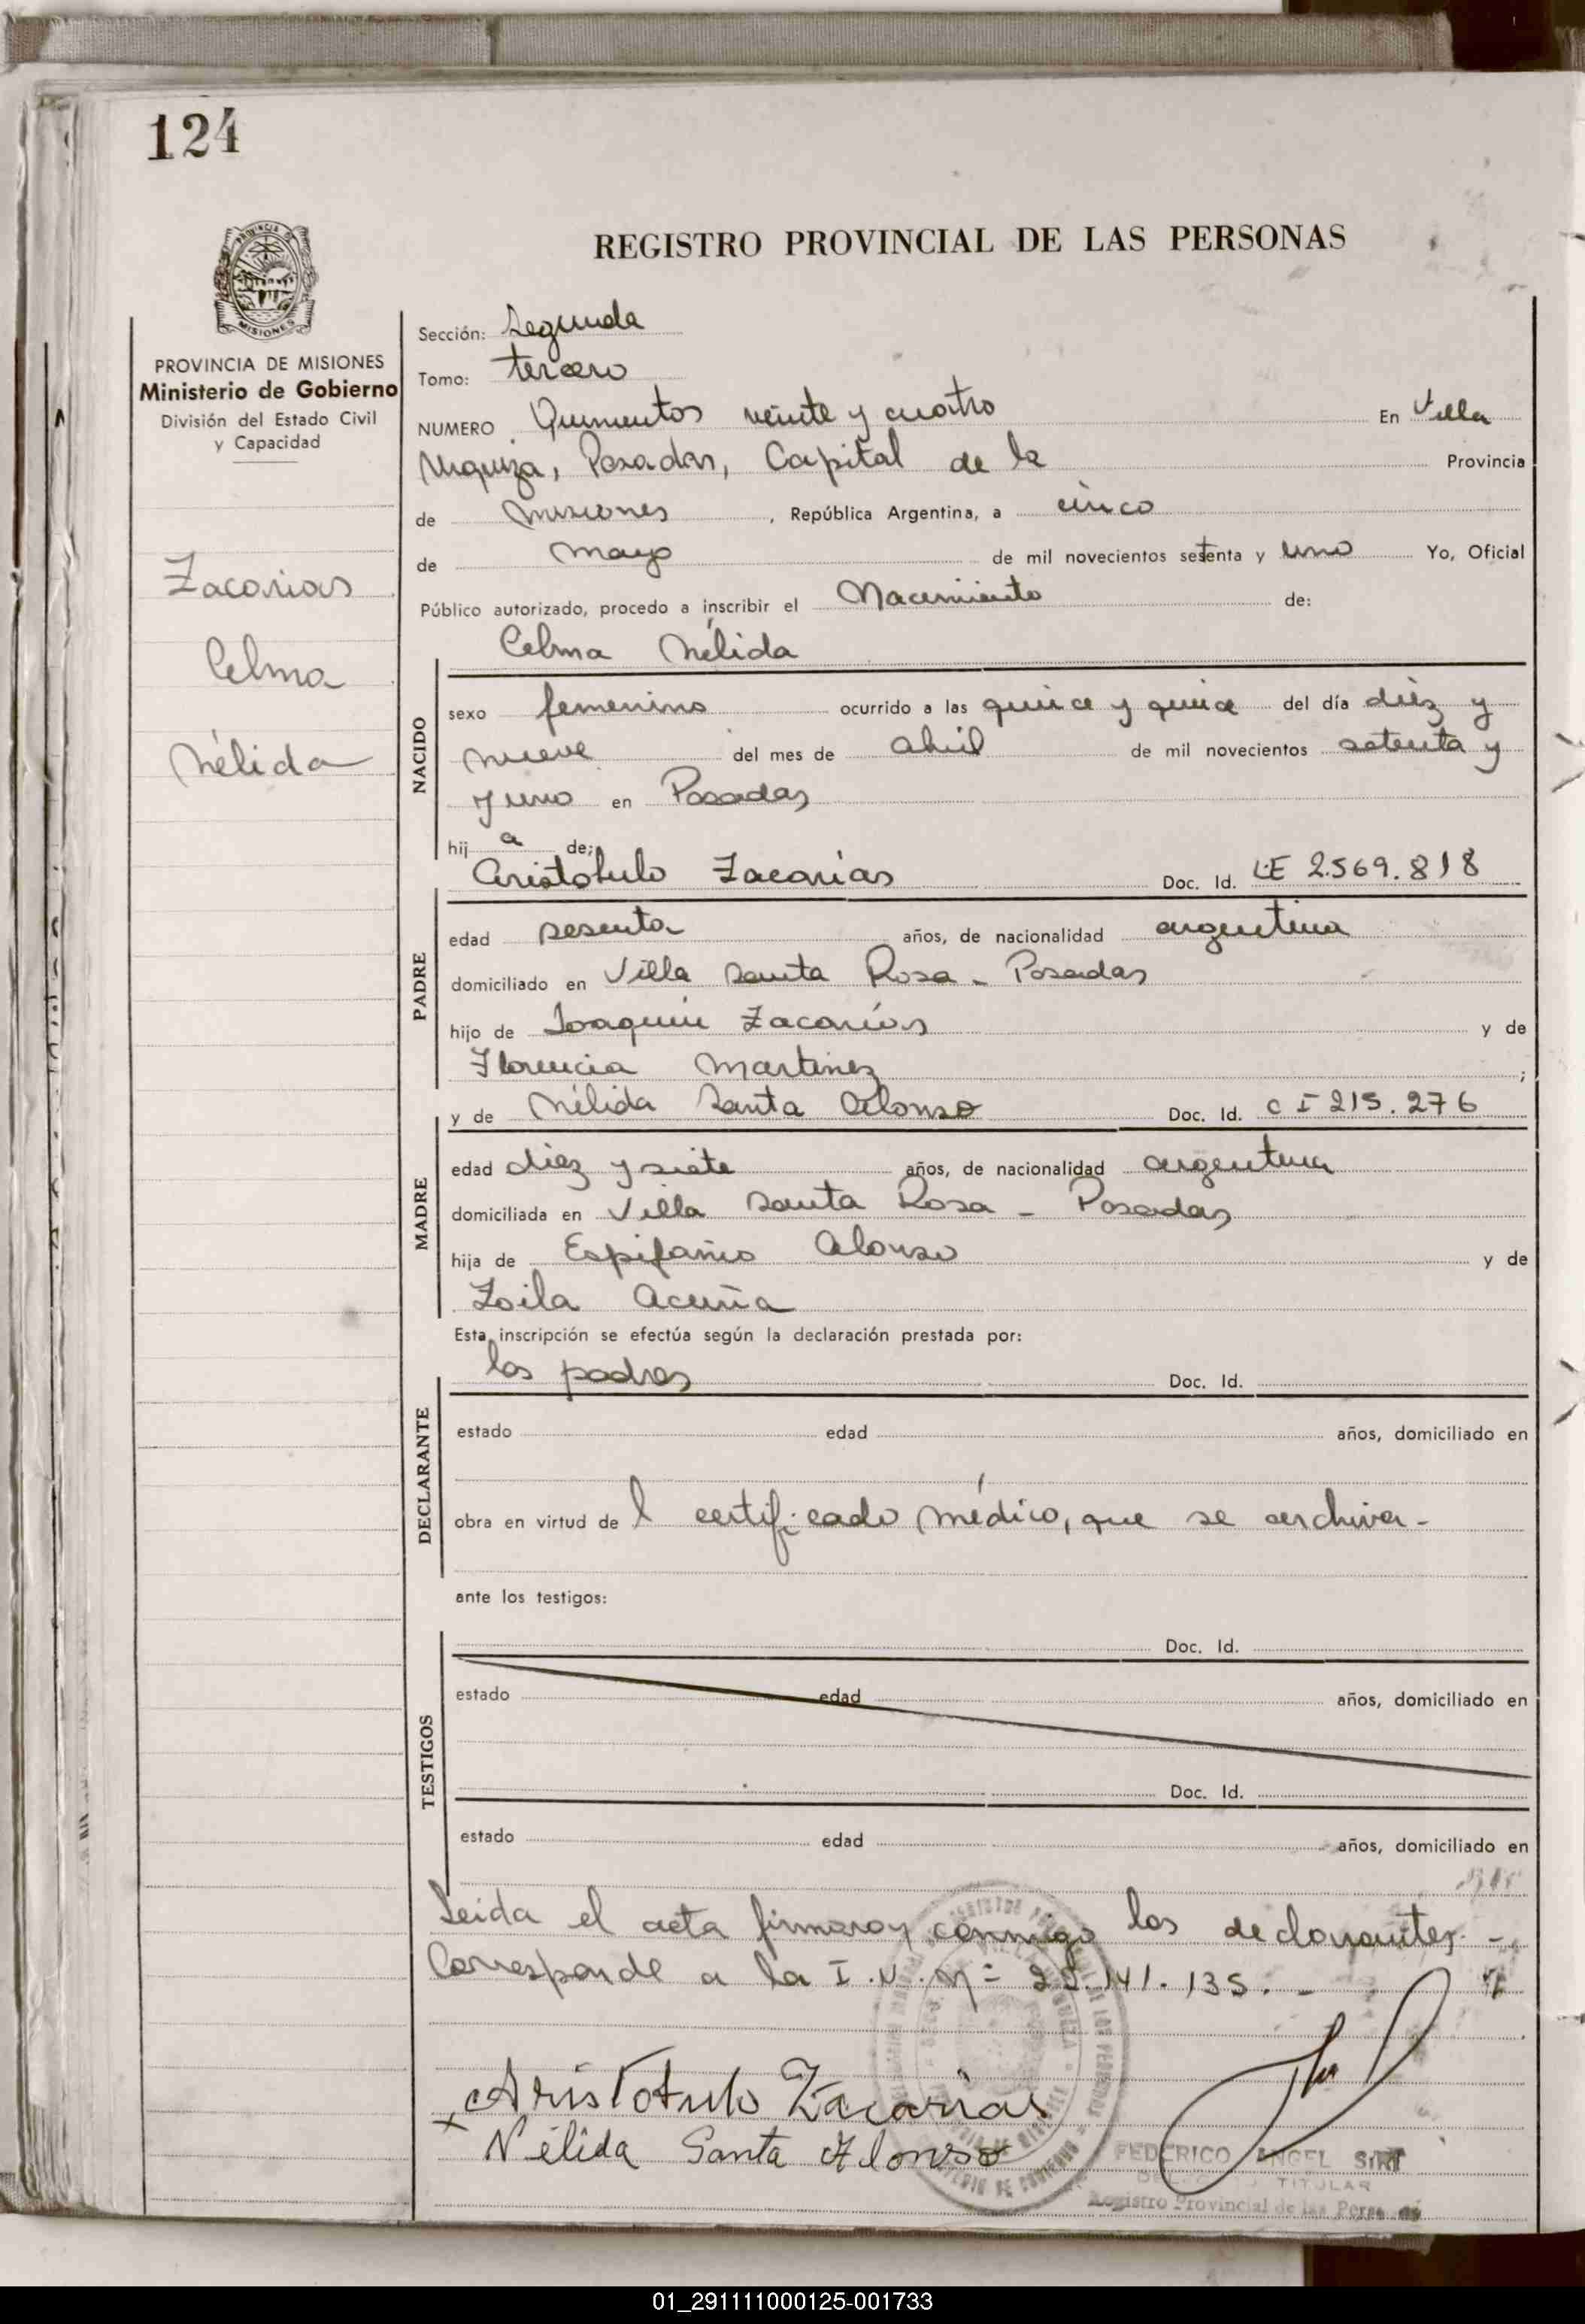 124
REGISTRO PROVINCIAL DE LAS PERSONAS
MISIONES
PROVINCIA DE MISIONES
Ministerio de Gobierno
División del Estado Civil
y Capacidad
Zacarias
Celma
Nélida
Sección: Segunda
Tomo: tercero
NUMERO Quinientos veinte y cuatro En Villa
Urquiza, Posadas, Capital de la Provincia
de Misiones, República Argentina, a cinco
de Mayo de mil novecientos setenta y uno Yo, Oficial
Público autorizado, procedo a inscribir el Nacimiento de:
Celma Nélida
NACIDO
sexo femenino ocurrido a las quince y quince del día diez y
nueve del mes de abril de mil novecientos setenta y
y uno en Posadas
hij a de;
Aristotulo Zacarias Doc. Id. LE 2.569.818
PADRE
edad sesenta años, de nacionalidad argentina
domiciliado en Villa Santa Rosa - Posadas
hijo de Joaquin Zacarías y de
Florencia Martinez ;
y de Nélida Santa Alonso Doc. Id. C I 215.276
MADRE
edad diez y siete años, de nacionalidad argentina
domiciliada en Villa Santa Rosa - Posadas
hija de Espifanio Alonso y de
Zoila Acuña
Esta inscripción se efectúa según la declaración prestada por:
los padres Doc. Id.
DECLARANTE
estado edad años, domiciliado en
obra en virtud de l certificado médico, que se archiva -
ante los testigos:
Doc. Id.
TESTIGOS
estado edad años, domiciliado en
Doc. Id.
estado edad años, domiciliado en
Leida el acta firmaron conmigo los declarantes. -
Corresponde a la I.N. Nº 22.141.135. -
Aristotulo Zacarias
Nélida Santa Alonso
FEDERICO ANGEL
TITULAR
Registro Provincial de las
01_291111000125-001733